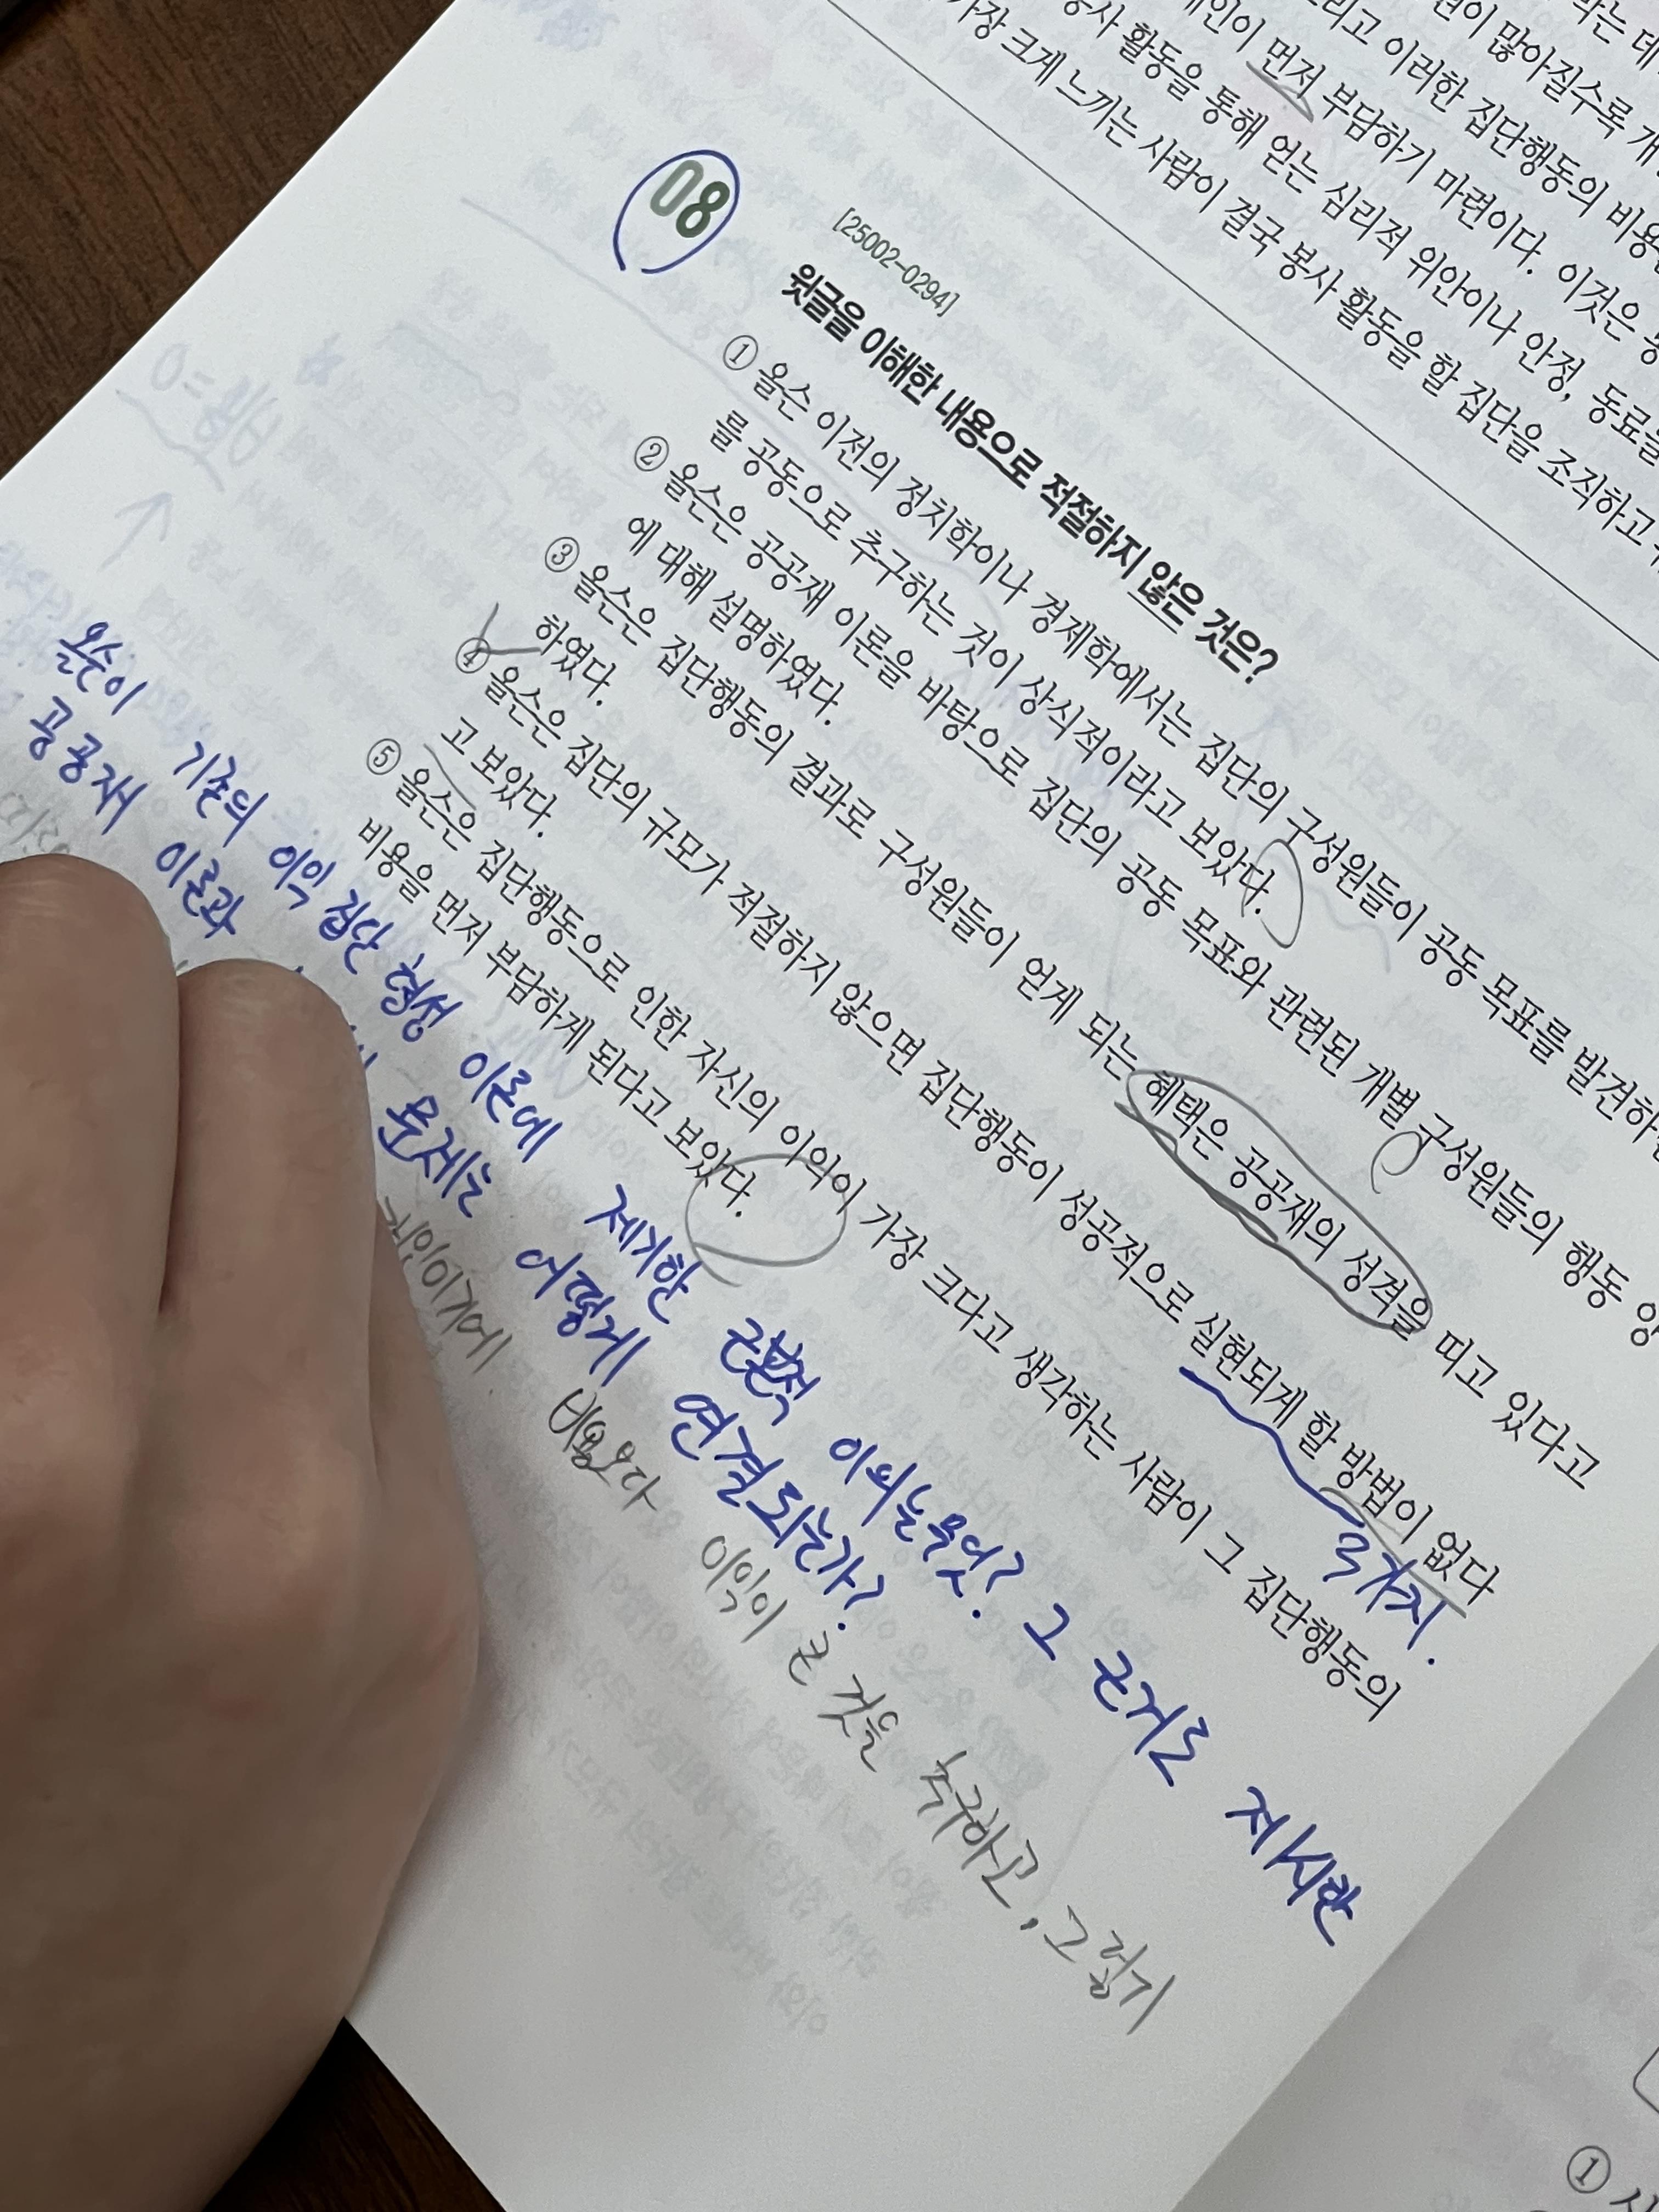 락는 데
면이 많아질수록 개
그리고 이러한 집단행동의 비용
개인이 먼저 부담하기 마련이다. 이것은 봉
봉사 활동을 통해 얻는 심리적 위안이나 안정, 동료들
가장 크게 느끼는 사람이 결국 봉사 활동을 할 집단을 조직하고
08
[25002-0294]
윗글을 이해한 내용으로 적절하지 않은 것은?
① 올슨 이전의 정치학이나 경제학에서는 집단의 구성원들이 공동 목표를 발견하
를 공동으로 추구하는 것이 상식적이라고 보았다.
② 올슨은 공공재 이론을 바탕으로 집단의 공동 목표와 관련된 개별 구성원들의 행동 양
에 대해 설명하였다.
③ 올슨은 집단행동의 결과로 구성원들이 얻게 되는 혜택은 공공재의 성격을 띠고 있다고
하였다.
④ 올슨은 집단의 규모가 적절하지 않으면 집단행동이 성공적으로 실현되게 할 방법이 없다
고 보았다.
3가지.
⑤ 올슨은 집단행동으로 인한 자신의 이익이 가장 크다고 생각하는 사람이 그 집단행동의
비용을 먼저 부담하게 된다고 보았다.
올슨이 기존의 이익 집단 형성 이론에 제기한 근본적 이의는 무엇? 그 근거로 제시한
공공재 이론과 문제는 어떻게 연결되는가?
적이기에. 비용보다 이익이 큰 것을 추구하고, 그렇기
①